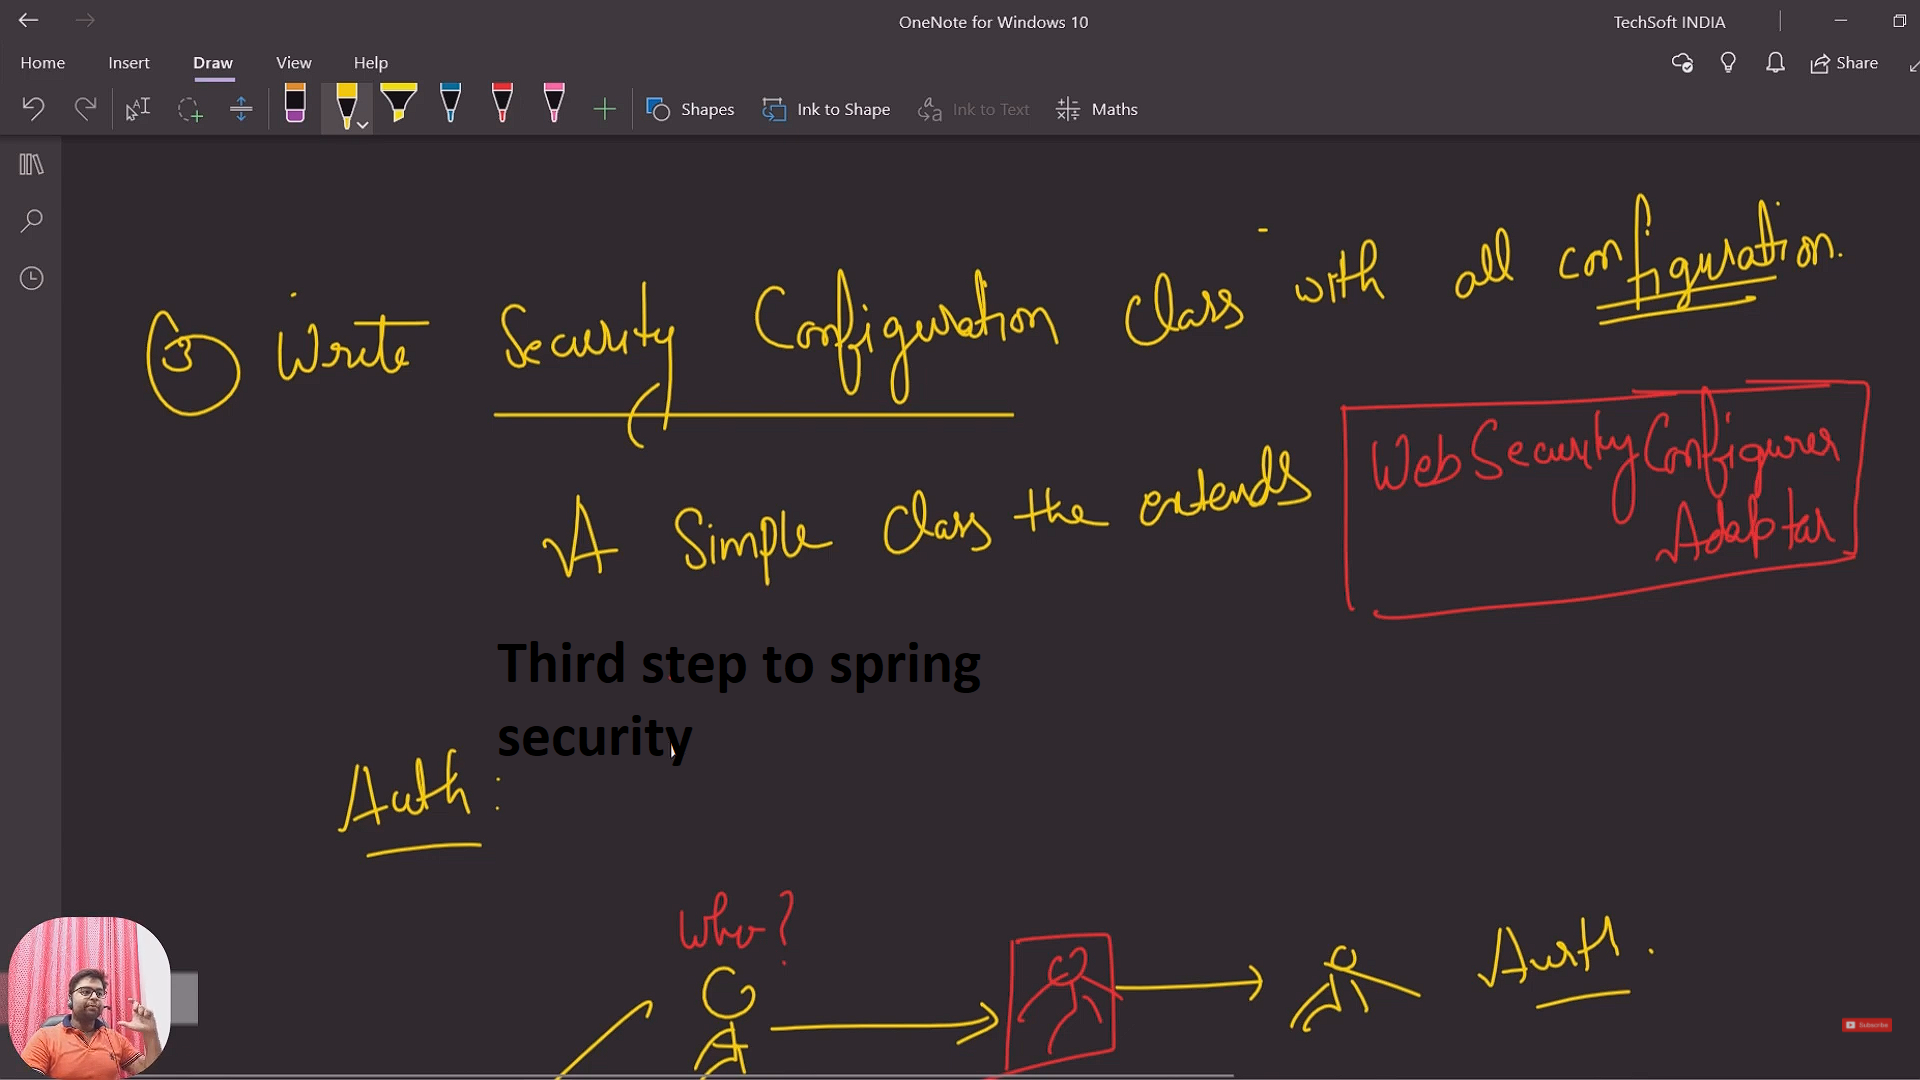 OneNote for Windows 10
TechSoft INDIA
Home Insert Draw View Help
Share
Shapes Ink to Shape Ink to Text Maths
3 Write Security Configuration class with all configuration.
A Simple class the extends WebSecurityConfigurer
Adaptar
Third step to spring
security
Auth :
Who?
Auth.
Subscribe